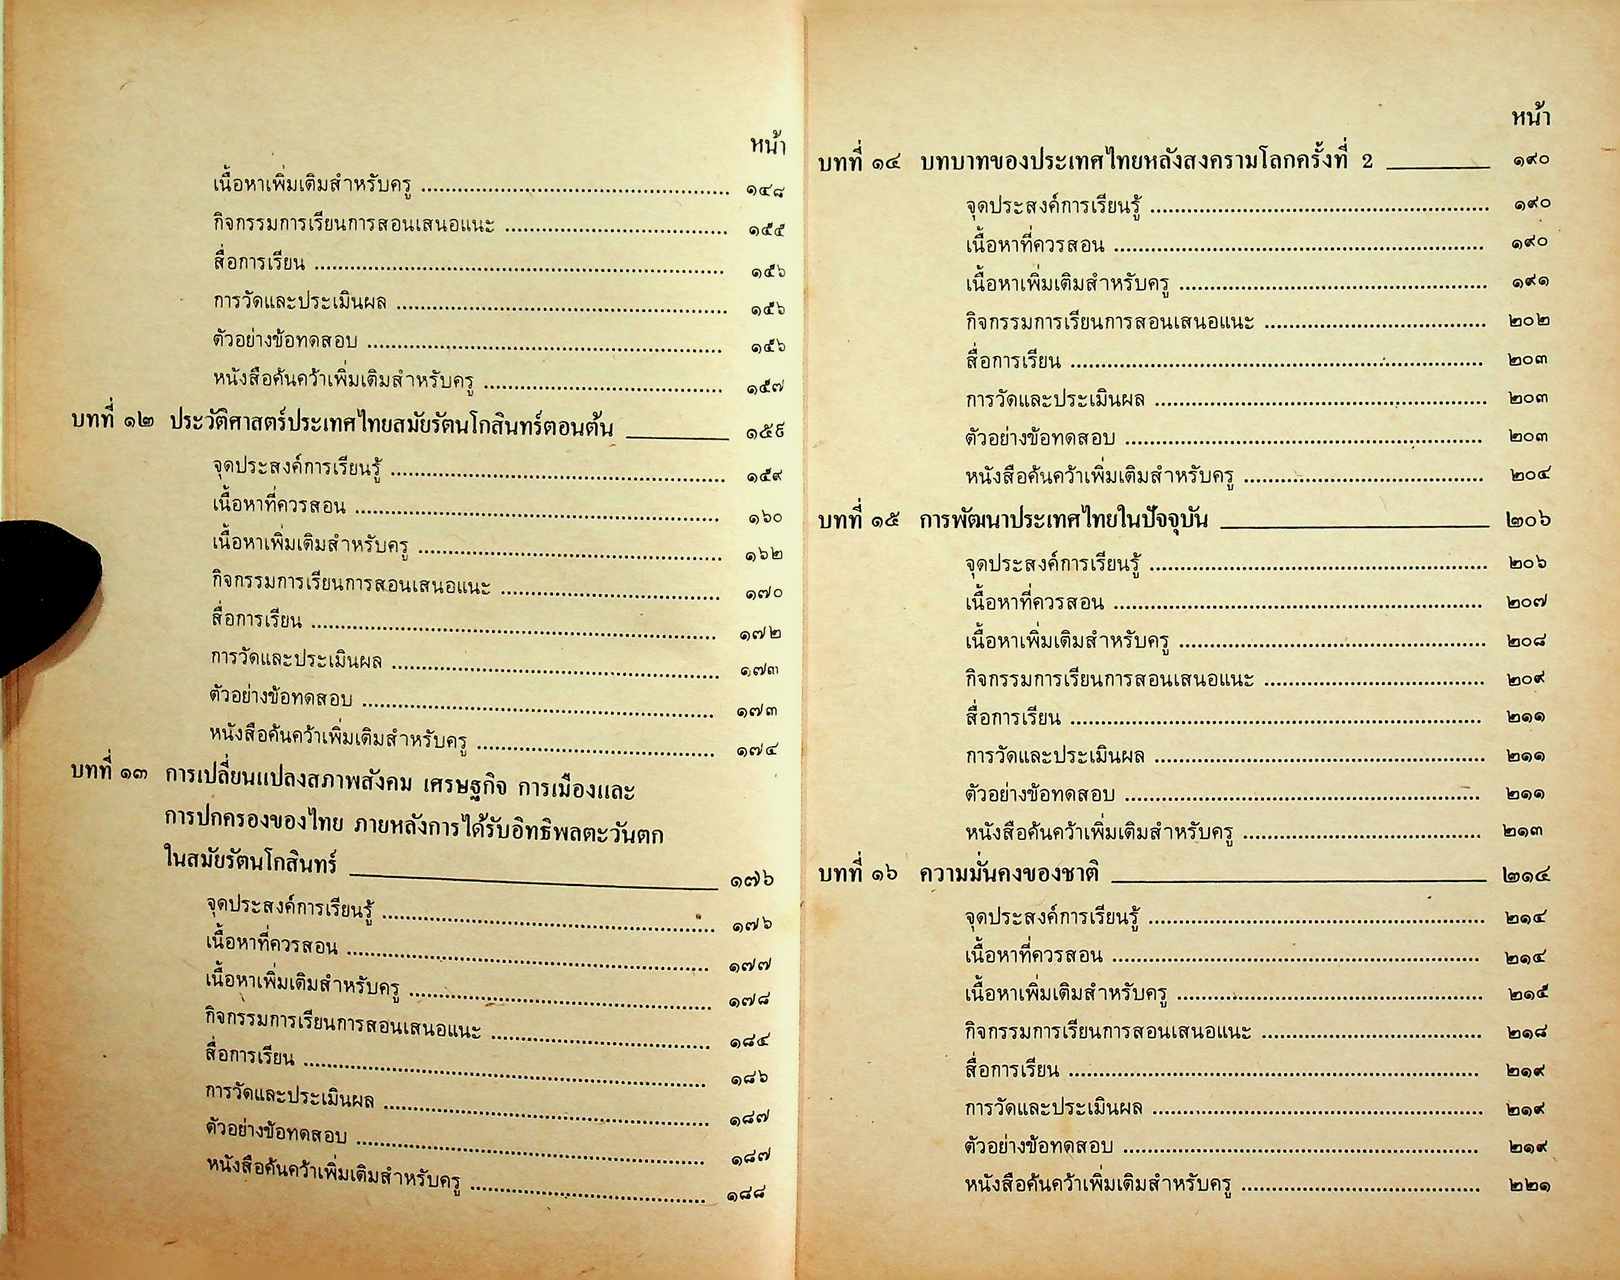 หน้า
เนื้อหาเพิ่มเติมสำหรับครู ........................................ ๑๔๘
กิจกรรมการเรียนการสอนเสนอแนะ ............................. ๑๕๕
สื่อการเรียน ...................................................... ๑๕๖
การวัดและประเมินผล ........................................... ๑๕๖
ตัวอย่างข้อทดสอบ ............................................... ๑๕๖
หนังสือค้นคว้าเพิ่มเติมสำหรับครู ............................... ๑๕๗
บทที่ ๑๒ ประวัติศาสตร์ประเทศไทยสมัยรัตนโกสินทร์ตอนต้น ________ ๑๕๙
จุดประสงค์การเรียนรู้ ............................................ ๑๕๙
เนื้อหาที่ควรสอน ................................................ ๑๖๐
เนื้อหาเพิ่มเติมสำหรับครู ........................................ ๑๖๒
กิจกรรมการเรียนการสอนเสนอแนะ ............................. ๑๗๐
สื่อการเรียน ...................................................... ๑๗๒
การวัดและประเมินผล ........................................... ๑๗๓
ตัวอย่างข้อทดสอบ ............................................... ๑๗๓
หนังสือค้นคว้าเพิ่มเติมสำหรับครู ............................... ๑๗๔
บทที่ ๑๓ การเปลี่ยนแปลงสภาพสังคม เศรษฐกิจ การเมืองและ
การปกครองของไทย ภายหลังการได้รับอิทธิพลตะวันตก
ในสมัยรัตนโกสินทร์ ________ ๑๗๖
จุดประสงค์การเรียนรู้ ............................................ ๑๗๖
เนื้อหาที่ควรสอน ................................................ ๑๗๗
เนื้อหาเพิ่มเติมสำหรับครู ........................................ ๑๗๘
กิจกรรมการเรียนการสอนเสนอแนะ ............................. ๑๘๔
สื่อการเรียน ...................................................... ๑๘๖
การวัดและประเมินผล ........................................... ๑๘๗
ตัวอย่างข้อทดสอบ ............................................... ๑๘๗
หนังสือค้นคว้าเพิ่มเติมสำหรับครู ............................... ๑๘๘
หน้า
บทที่ ๑๔ บทบาทของประเทศไทยหลังสงครามโลกครั้งที่ 2 ________ ๑๙๐
จุดประสงค์การเรียนรู้ ............................................ ๑๙๐
เนื้อหาที่ควรสอน ................................................ ๑๙๐
เนื้อหาเพิ่มเติมสำหรับครู ........................................ ๑๙๑
กิจกรรมการเรียนการสอนเสนอแนะ ............................. ๒๐๒
สื่อการเรียน ...................................................... ๒๐๓
การวัดและประเมินผล ........................................... ๒๐๓
ตัวอย่างข้อทดสอบ ............................................... ๒๐๓
หนังสือค้นคว้าเพิ่มเติมสำหรับครู ............................... ๒๐๔
บทที่ ๑๕ การพัฒนาประเทศไทยในปัจจุบัน ________ ๒๐๖
จุดประสงค์การเรียนรู้ ............................................ ๒๐๖
เนื้อหาที่ควรสอน ................................................ ๒๐๗
เนื้อหาเพิ่มเติมสำหรับครู ........................................ ๒๐๘
กิจกรรมการเรียนการสอนเสนอแนะ ............................. ๒๐๙
สื่อการเรียน ...................................................... ๒๑๑
การวัดและประเมินผล ........................................... ๒๑๑
ตัวอย่างข้อทดสอบ ............................................... ๒๑๑
หนังสือค้นคว้าเพิ่มเติมสำหรับครู ............................... ๒๑๓
บทที่ ๑๖ ความมั่นคงของชาติ ________ ๒๑๔
จุดประสงค์การเรียนรู้ ............................................ ๒๑๔
เนื้อหาที่ควรสอน ................................................ ๒๑๔
เนื้อหาเพิ่มเติมสำหรับครู ........................................ ๒๑๕
กิจกรรมการเรียนการสอนเสนอแนะ ............................. ๒๑๘
สื่อการเรียน ...................................................... ๒๑๙
การวัดและประเมินผล ........................................... ๒๑๙
ตัวอย่างข้อทดสอบ ............................................... ๒๑๙
หนังสือค้นคว้าเพิ่มเติมสำหรับครู ............................... ๒๒๑